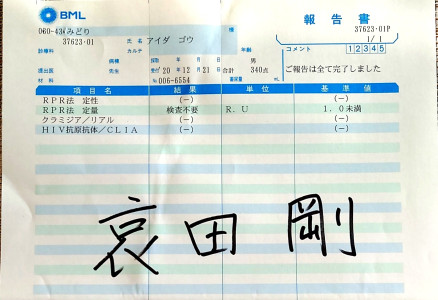 BML
報告書
060-43 みどり
様
37623-01
氏名 アイダ ゴウ
37623-01P
1/1
診療科
カルテ
年齢
男
コメント 1 2 3 4 5
病棟
年 月 日
提出医
先生
受付 20年12月21日
合計 340点
ご報告は全て完了しました
材料
№006-6554
項目名 結果 単位 基準値
RPR法 定性 (−) (−)
RPR法 定量 検査不要 R.U 1.0未満
クラミジア/リアル (−) (−)
HIV抗原抗体/CLIA (−) (−)
哀田 剛